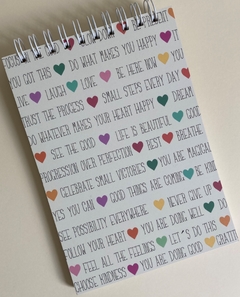 YOU GOT THIS DO WHAT MAKES YOU HAPPY IT
LIVE LAUGH LOVE BE HERE NOW YOU
TRUST THE PROCESS SMALL STEPS EVERY DAY
DO WHATEVER MAKES YOUR HEART HAPPY DREAM
SEE THE GOOD LIFE IS BEAUTIFUL GOOD
PROGRESSION OVER PERFECTION BEST BREATHE
CELEBRATE SMALL VICTORIES YOU ARE MAGICAL
YES YOU CAN GOOD THINGS ARE COMING BE KIND
SEE POSSIBILITY EVERYWHERE NEVER GIVE UP
FOLLOW YOUR HEART YOU ARE DOING WELL
FEEL ALL THE FEELINGS LET'S DO THIS
CHOOSE KINDNESS YOU ARE DOING GOOD